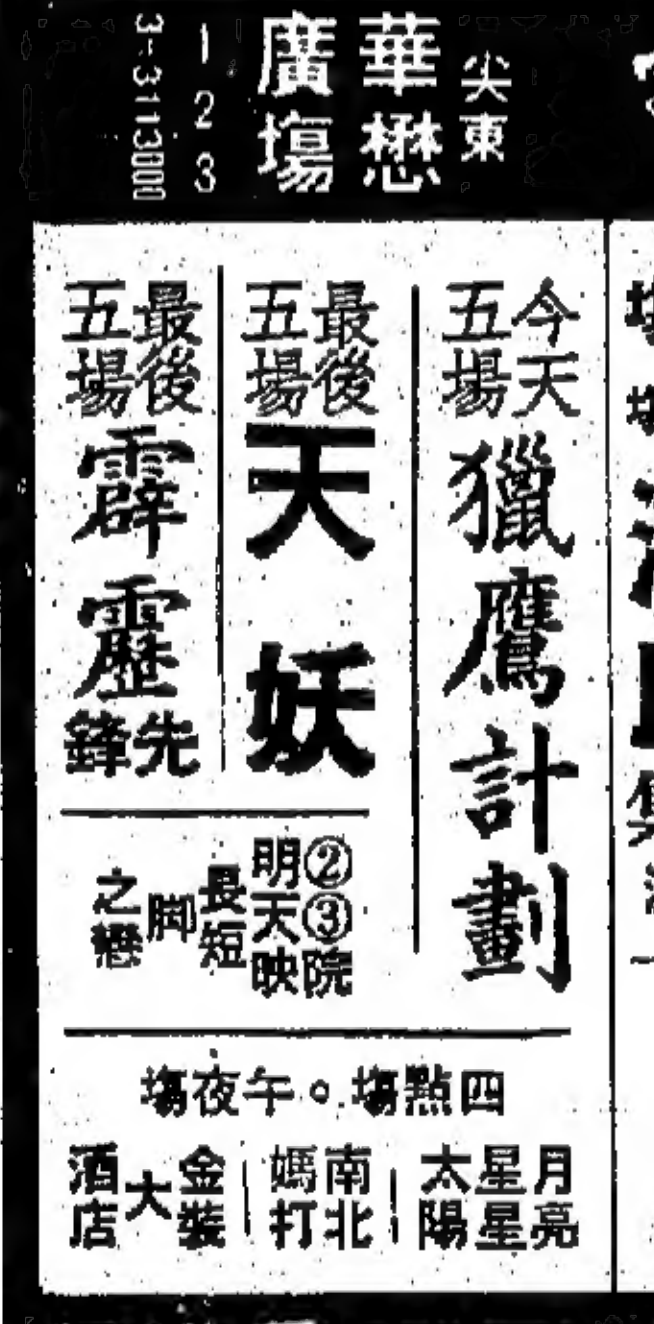 尖東
華懋
廣場
1 2 3
3-3113000
今天
五場
獵鷹計劃
最後
五場
天妖
最後
五場
霹靂
先鋒
②③院
明天映
長短
脚
之戀
四點場。午夜場
月亮
星星
太陽
南北
媽打
金裝
大
酒店